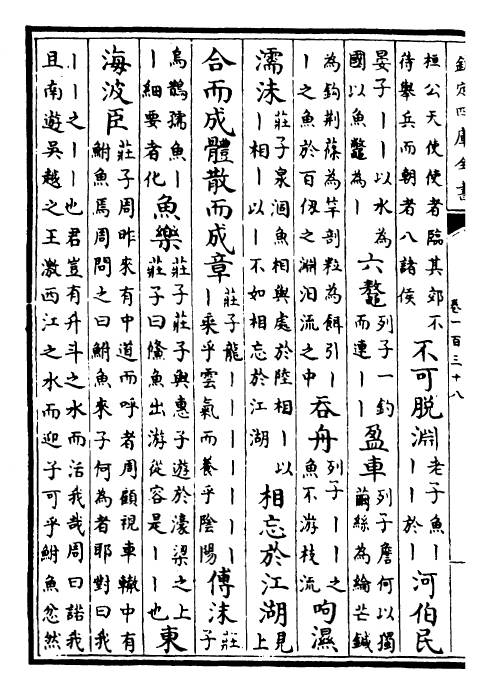 欽定四庫全書
卷一百三十八
桓公天使使者臨其郊不
待舉兵而朝者八諸侯
不可脱淵
老子魚丨
丨丨於丨
河伯民
晏子丨丨以水為
國以魚鼈為丨
六鼇
列子一釣
而連丨丨
盈車
列子詹何以獨
繭絲為綸芒鍼
為鈎荆蓧為竿剖粒為餌引丨
丨之魚於百仭之淵汩流之中
吞舟
列子丨丨之
魚不游枝流
呴濕
濡沫
莊子泉涸魚相與處於陸相丨以
丨相丨以丨不如相忘於江湖
相忘於江湖
見
上
合而成體散而成章
莊子龍丨丨丨丨丨丨丨
丨乘乎雲氣而養乎陰陽
傅沫
莊
子
烏鵲孺魚丨
丨細要者化
魚樂
莊子莊子與惠子遊於濠梁之上
莊子曰鯈魚出游從容是丨丨也
東
海波臣
莊子周昨來有中道而呼者周顧視車轍中有
鮒魚焉周問之曰鮒魚來子何為者耶對曰我
丨丨之丨丨也君豈有升斗之水而活我哉周曰諾我
且南遊吳越之王激西江之水而迎子可乎鮒魚忿然